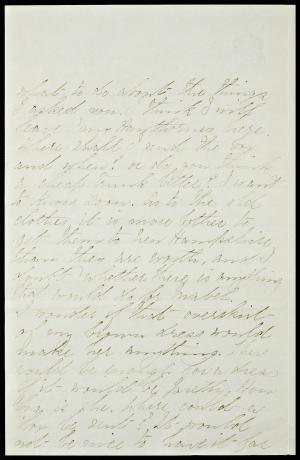 what to do about the things
I asked you. I think I will
leave my Hawthornes here.
Where shall I send the box
and when? or do you think
a cheap trunk better? I want
to know soon. As to the old
clothes, it is more bother to
get them to New Hampshire,
than they are worth, and I
doubt whether there is anything
that would do for Mabel.
I wonder if that overskirt
of my brown dress would
make her anything. There
would be enough for a dress
if it would be pretty. How
big is she. Where could a
box be sent? It would
not be nice to have it far